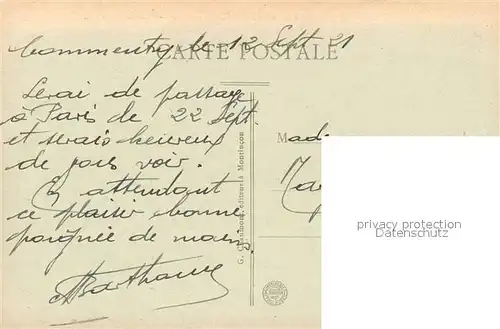 Commentry le 12 Sept 21
CARTE POSTALE
Serai de passage
à Paris le 22 Sept.
et serais heureux
de vous voir.
En attendant
ce plaisir bonne
poignée de mains
G. Chaumont, éditeur à Montluçon
Mad
privacy protection
Datenschutz